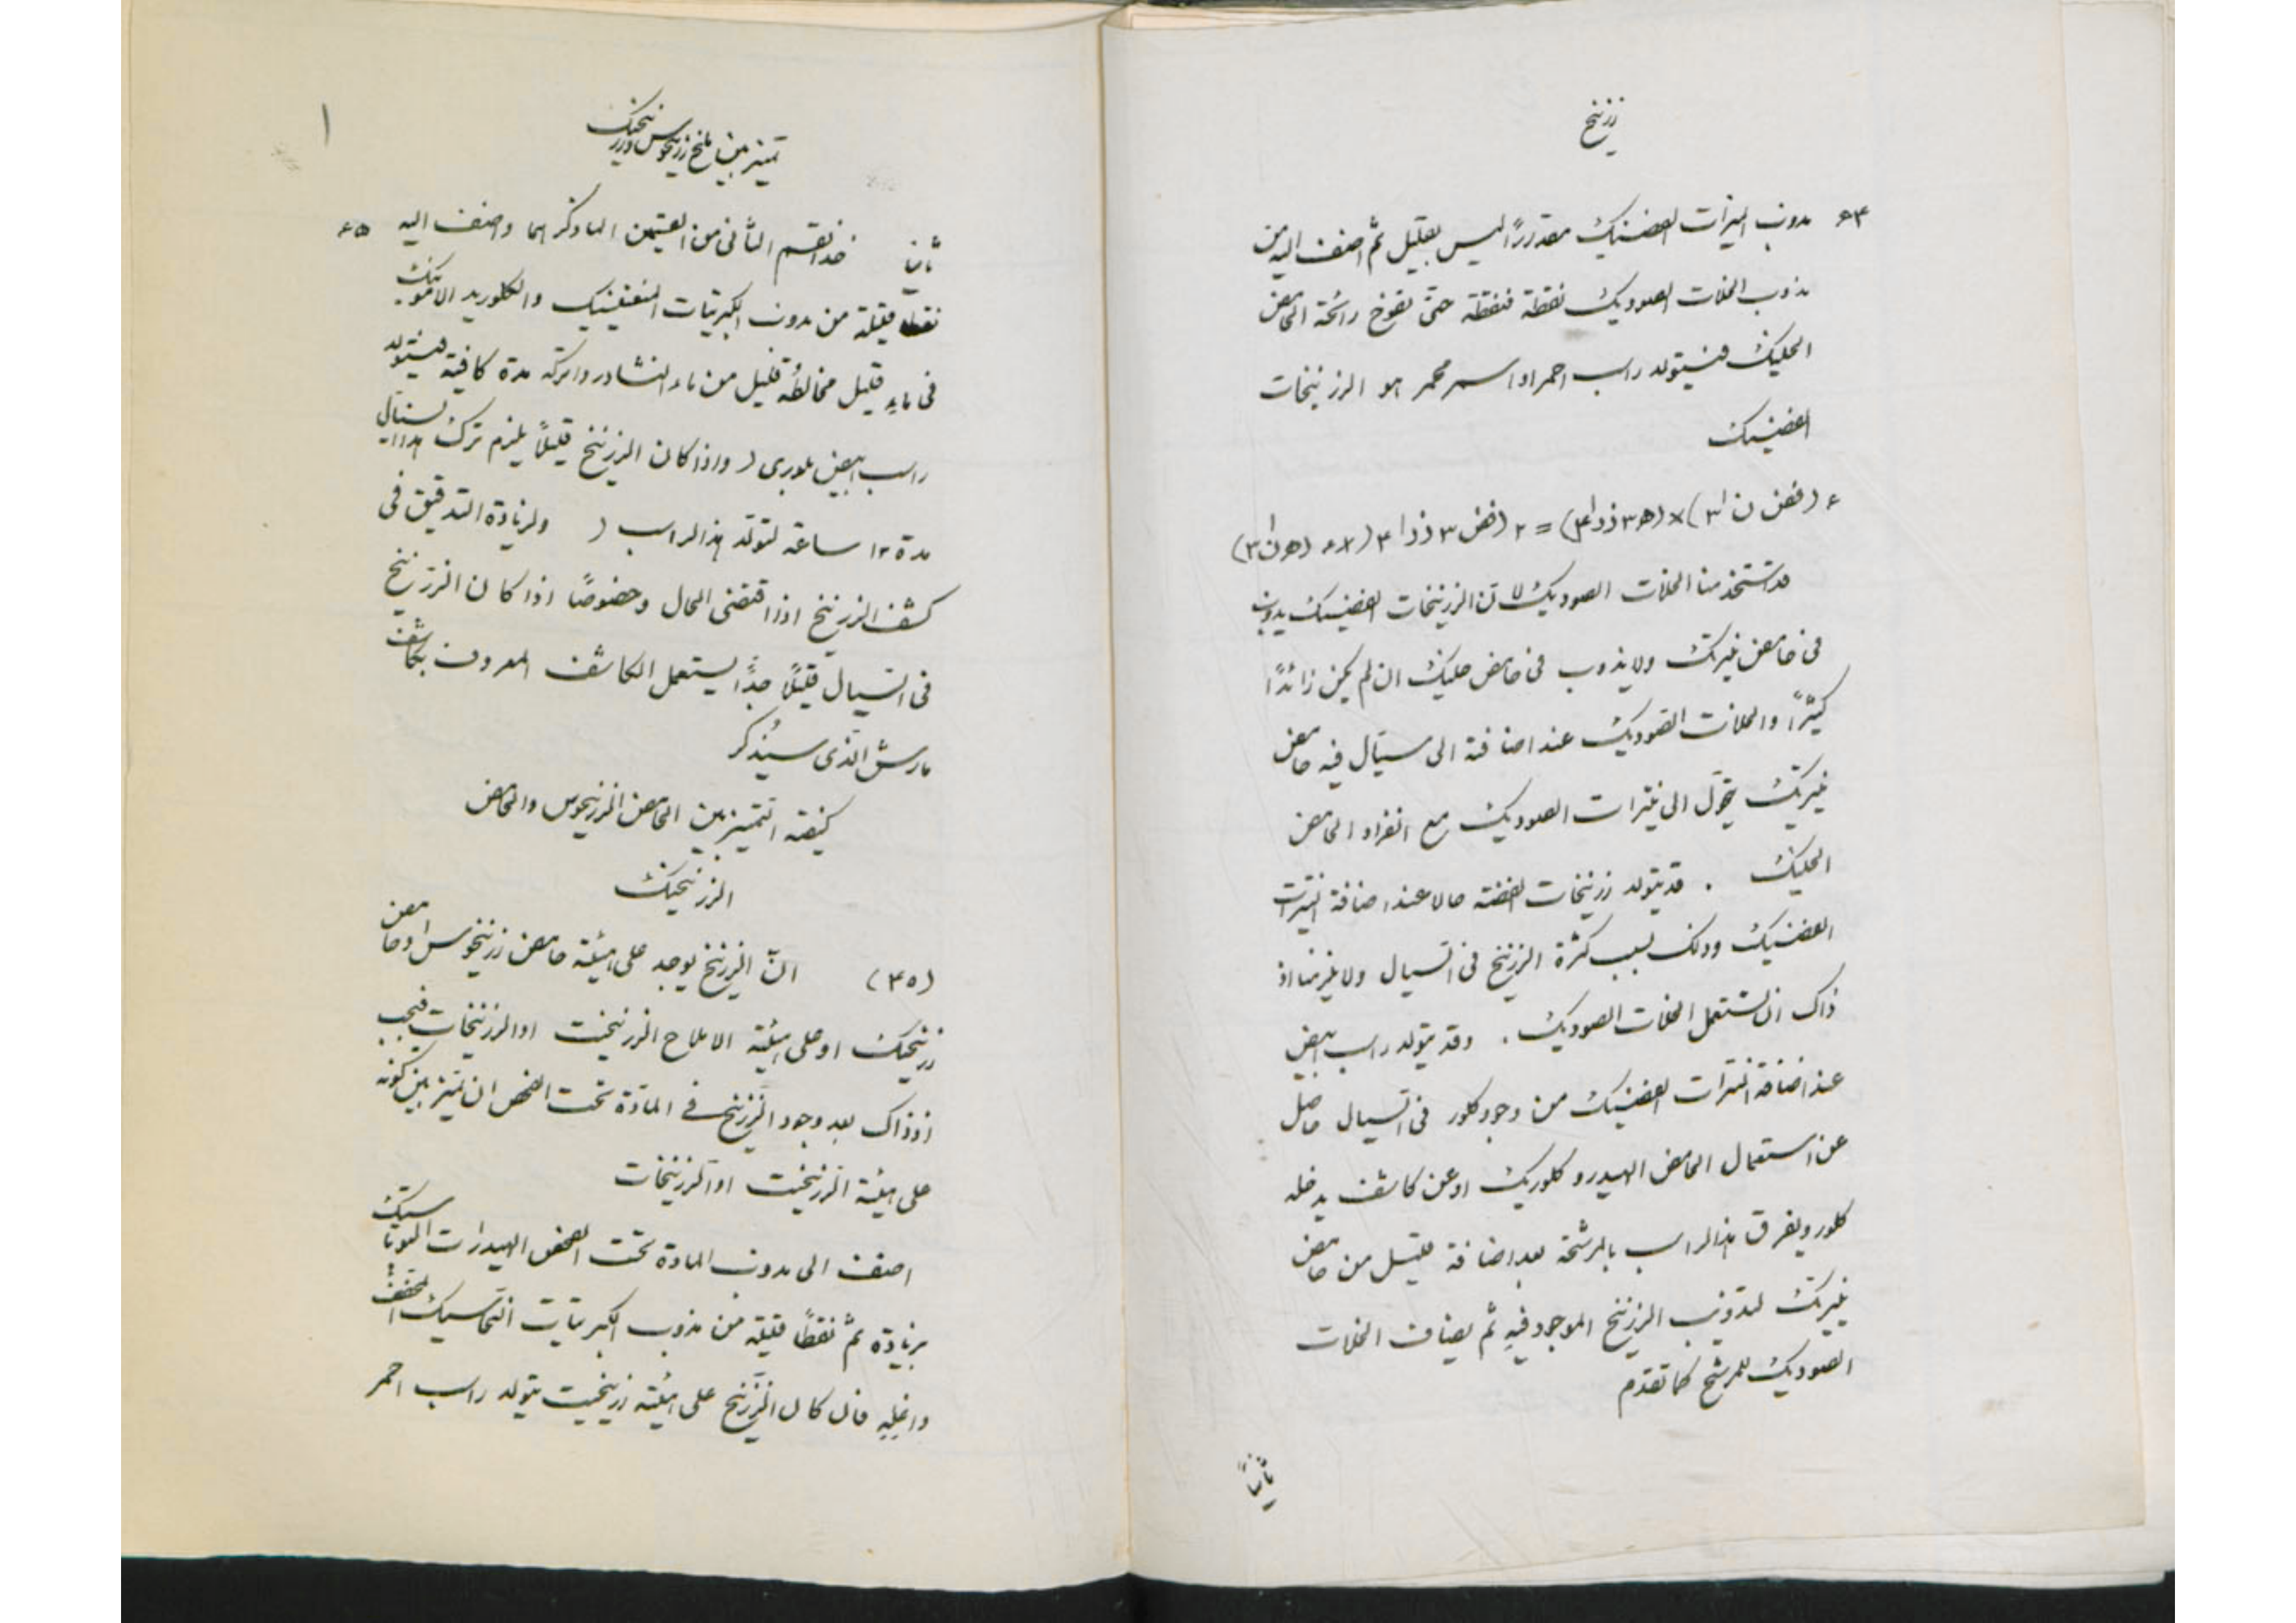 زرنيخ
٦٤ مذوب النيترات الفضيك مقدرراً ليس بقليل ثم اضف اليه من
مذوب الخلات الصوديك نقطة فنقطة حتى تفوح رائحة الحامض
الخليك فيتولد راسب احمر او اسمر محمر هو الزرنيخات
الفضيك
٦ (فض ن ا٣)×(ه٣ زر ا٤) = ٢ (فض ٣ زر ا ٤) × ٦ (ه ن ا٣)
قد استخدمنا الخلات الصوديك لان الزرنيخات الفضيك يذوب
فى حامض نيتريك ولا يذوب فى حامض خليك ان لم يكن زائداً
كثيراً والخلات الصوديك عند اضافته الى سيّال فيه حامض
نيتريك يتحوّل الى نيترات الصوديك مع انفراد الحامض
الخليك . قد يتولد زرنيخات الفضة حالا عند اضافة النيترات
الفضيك وذلك بسبب كثرة الزرنيخ فى السيال ولا يلزمنا اذ
ذاك ان نستعمل الخلات الصوديك . وقد يتولد راسب ابيض
عند اضافة النيترات الفضيك من وجود كلور فى السيال حاصل
عن استعمال الحامض الهيدروكلوريك او عن كاشف يدخله
كلور ويفرق هذا الراسب بالمرشحة بعد اضافة قليل من حامض
نيتريك لتذويب الزرنيخ الموجود فيه ثم يضاف الخلات
الصوديك للمرشح كما تقدم
ثانياً
تمييز بين املاح زرنيخوس وزرنيخيك
١
ثانياً خذ القسم الثانى من القسمين المار ذكرهما واضف اليه ٦٥
نقطاً قليلة من مذوب الكبريتات المنغنيسيك والكلوريد الامونيك
فى ماءٍ قليل مخالطُه قليل من ماء النشادر واتركه مدة كافية فيتولد
راسب ابيض بلورى (واذا كان الزرنيخ قليلاً يلزم ترك هذا السيال
مدة ١٢ ساعة لتولّد هذا الراسب ) ولزيادة التدقيق فى
كشف الزرنيخ اذا اقتضى الحال وخصوصاً اذا كان الزرنيخ
فى السيال قليلاً جدًّا يستعمل الكاشف المعروف بكاشف
مارش الذى سيُذكر
كيفية التمييز بين الحامض الزرنيخوس والحامض
الزرنيخيك
(٤٥) انّ الزرنيخ يوجد على هيئة حامض زرنيخوس او حامض
زرنيخيك او على هيئة الاملاح الزرنيخيت او الزرنيخات فيجب
اذ ذاك بعد وجود الزرنيخ فى المادّة تحت الفحص ان نميّز بين كونه
على هيئة الزرنيخيت او الزرنيخات
اضف الى مذوب المادة تحت الفحص الهيدرات البوتاسيك
بزيادة ثم نقطاً قليلة من مذوب الكبريتات النحاسيك المخفف
واغلِهِ فان كان الزرنيخ على هيئة زرنيخيت يتولد راسب احمر